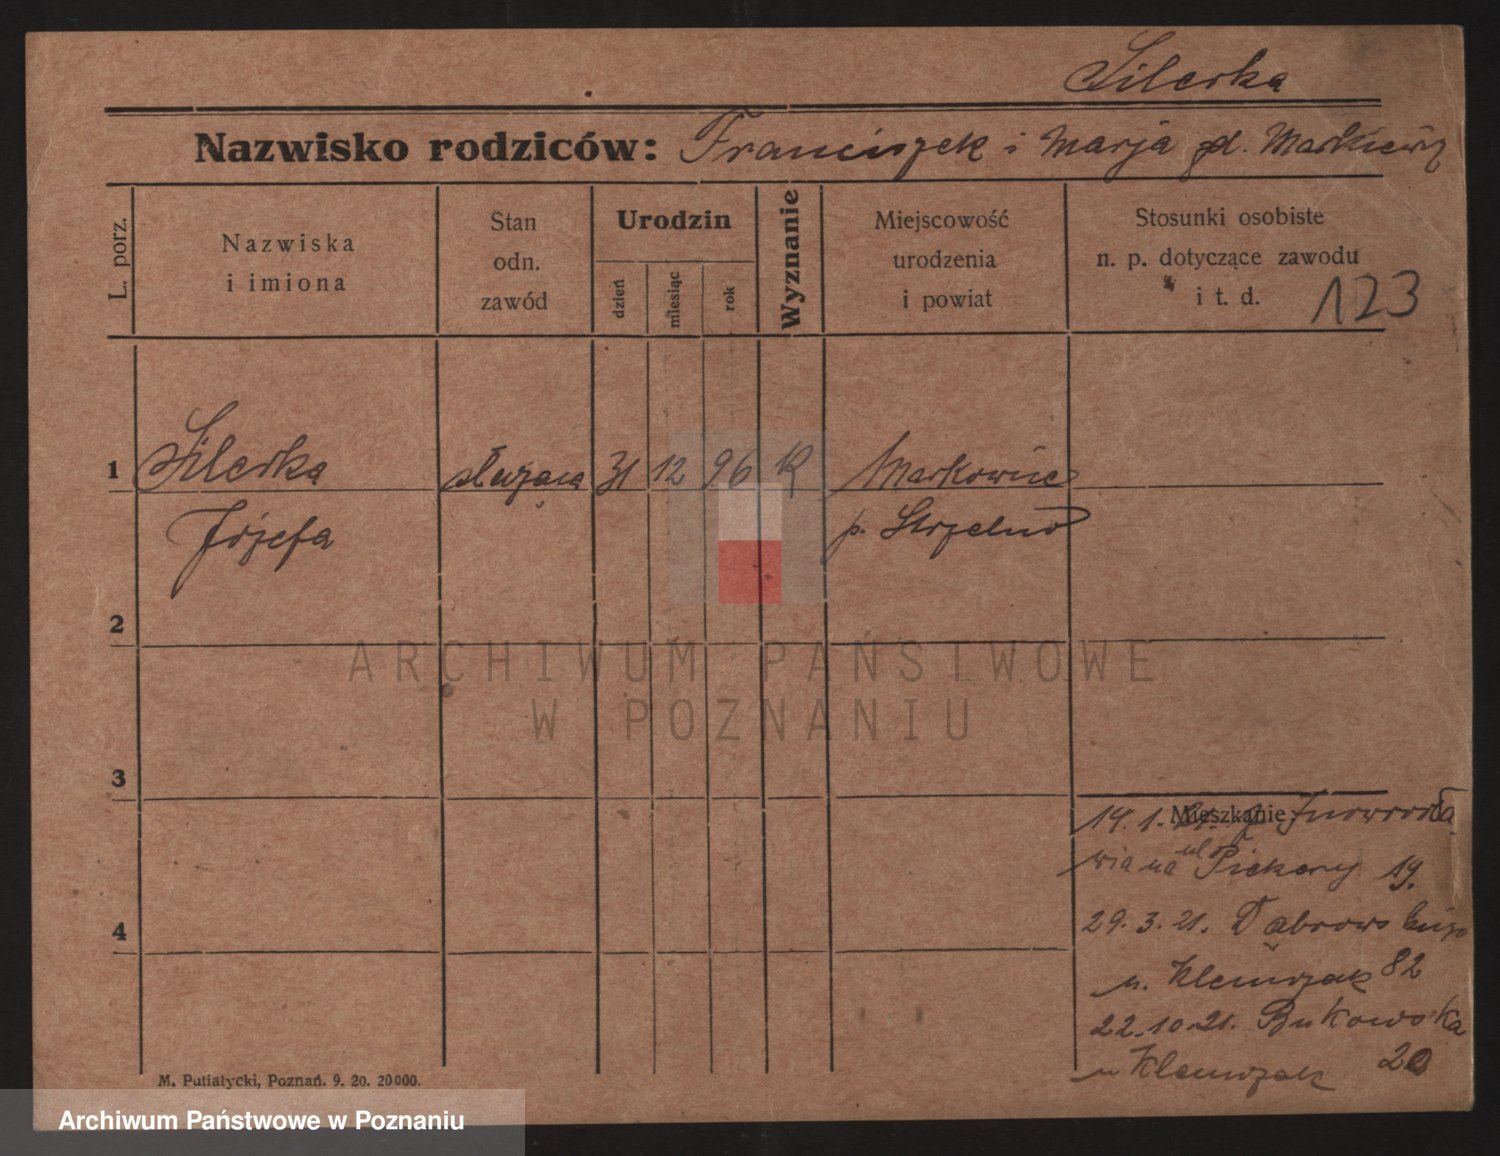 Silerka
Nazwisko rodziców: Franciszek i Marja gd. Markiewicz
L. porz.
Nazwiska
i imiona
Stan
odn.
zawód
Urodzin
dzień
miesiąc
rok
Wyznanie
Miejscowość
urodzenia
i powiat
Stosunki osobiste
n. p. dotyczące zawodu
i t. d.
123
1 Silerka służąca 31 12 96 K Markowice
Józefa p. Strzelno
2
3
4
Mieszkanie:
14. 1. 21. z Inowrocła
wia na ul. Piekary 19.
29. 3. 21. Dąbrowskiego
u. Klemczak 82
22.10.21. Bukowska
u Klemczak 20
M. Putiatycki, Poznań. 9. 20. 20000.
ARCHIWUM PAŃSTWOWE
W POZNANIU
Archiwum Państwowe w Poznaniu